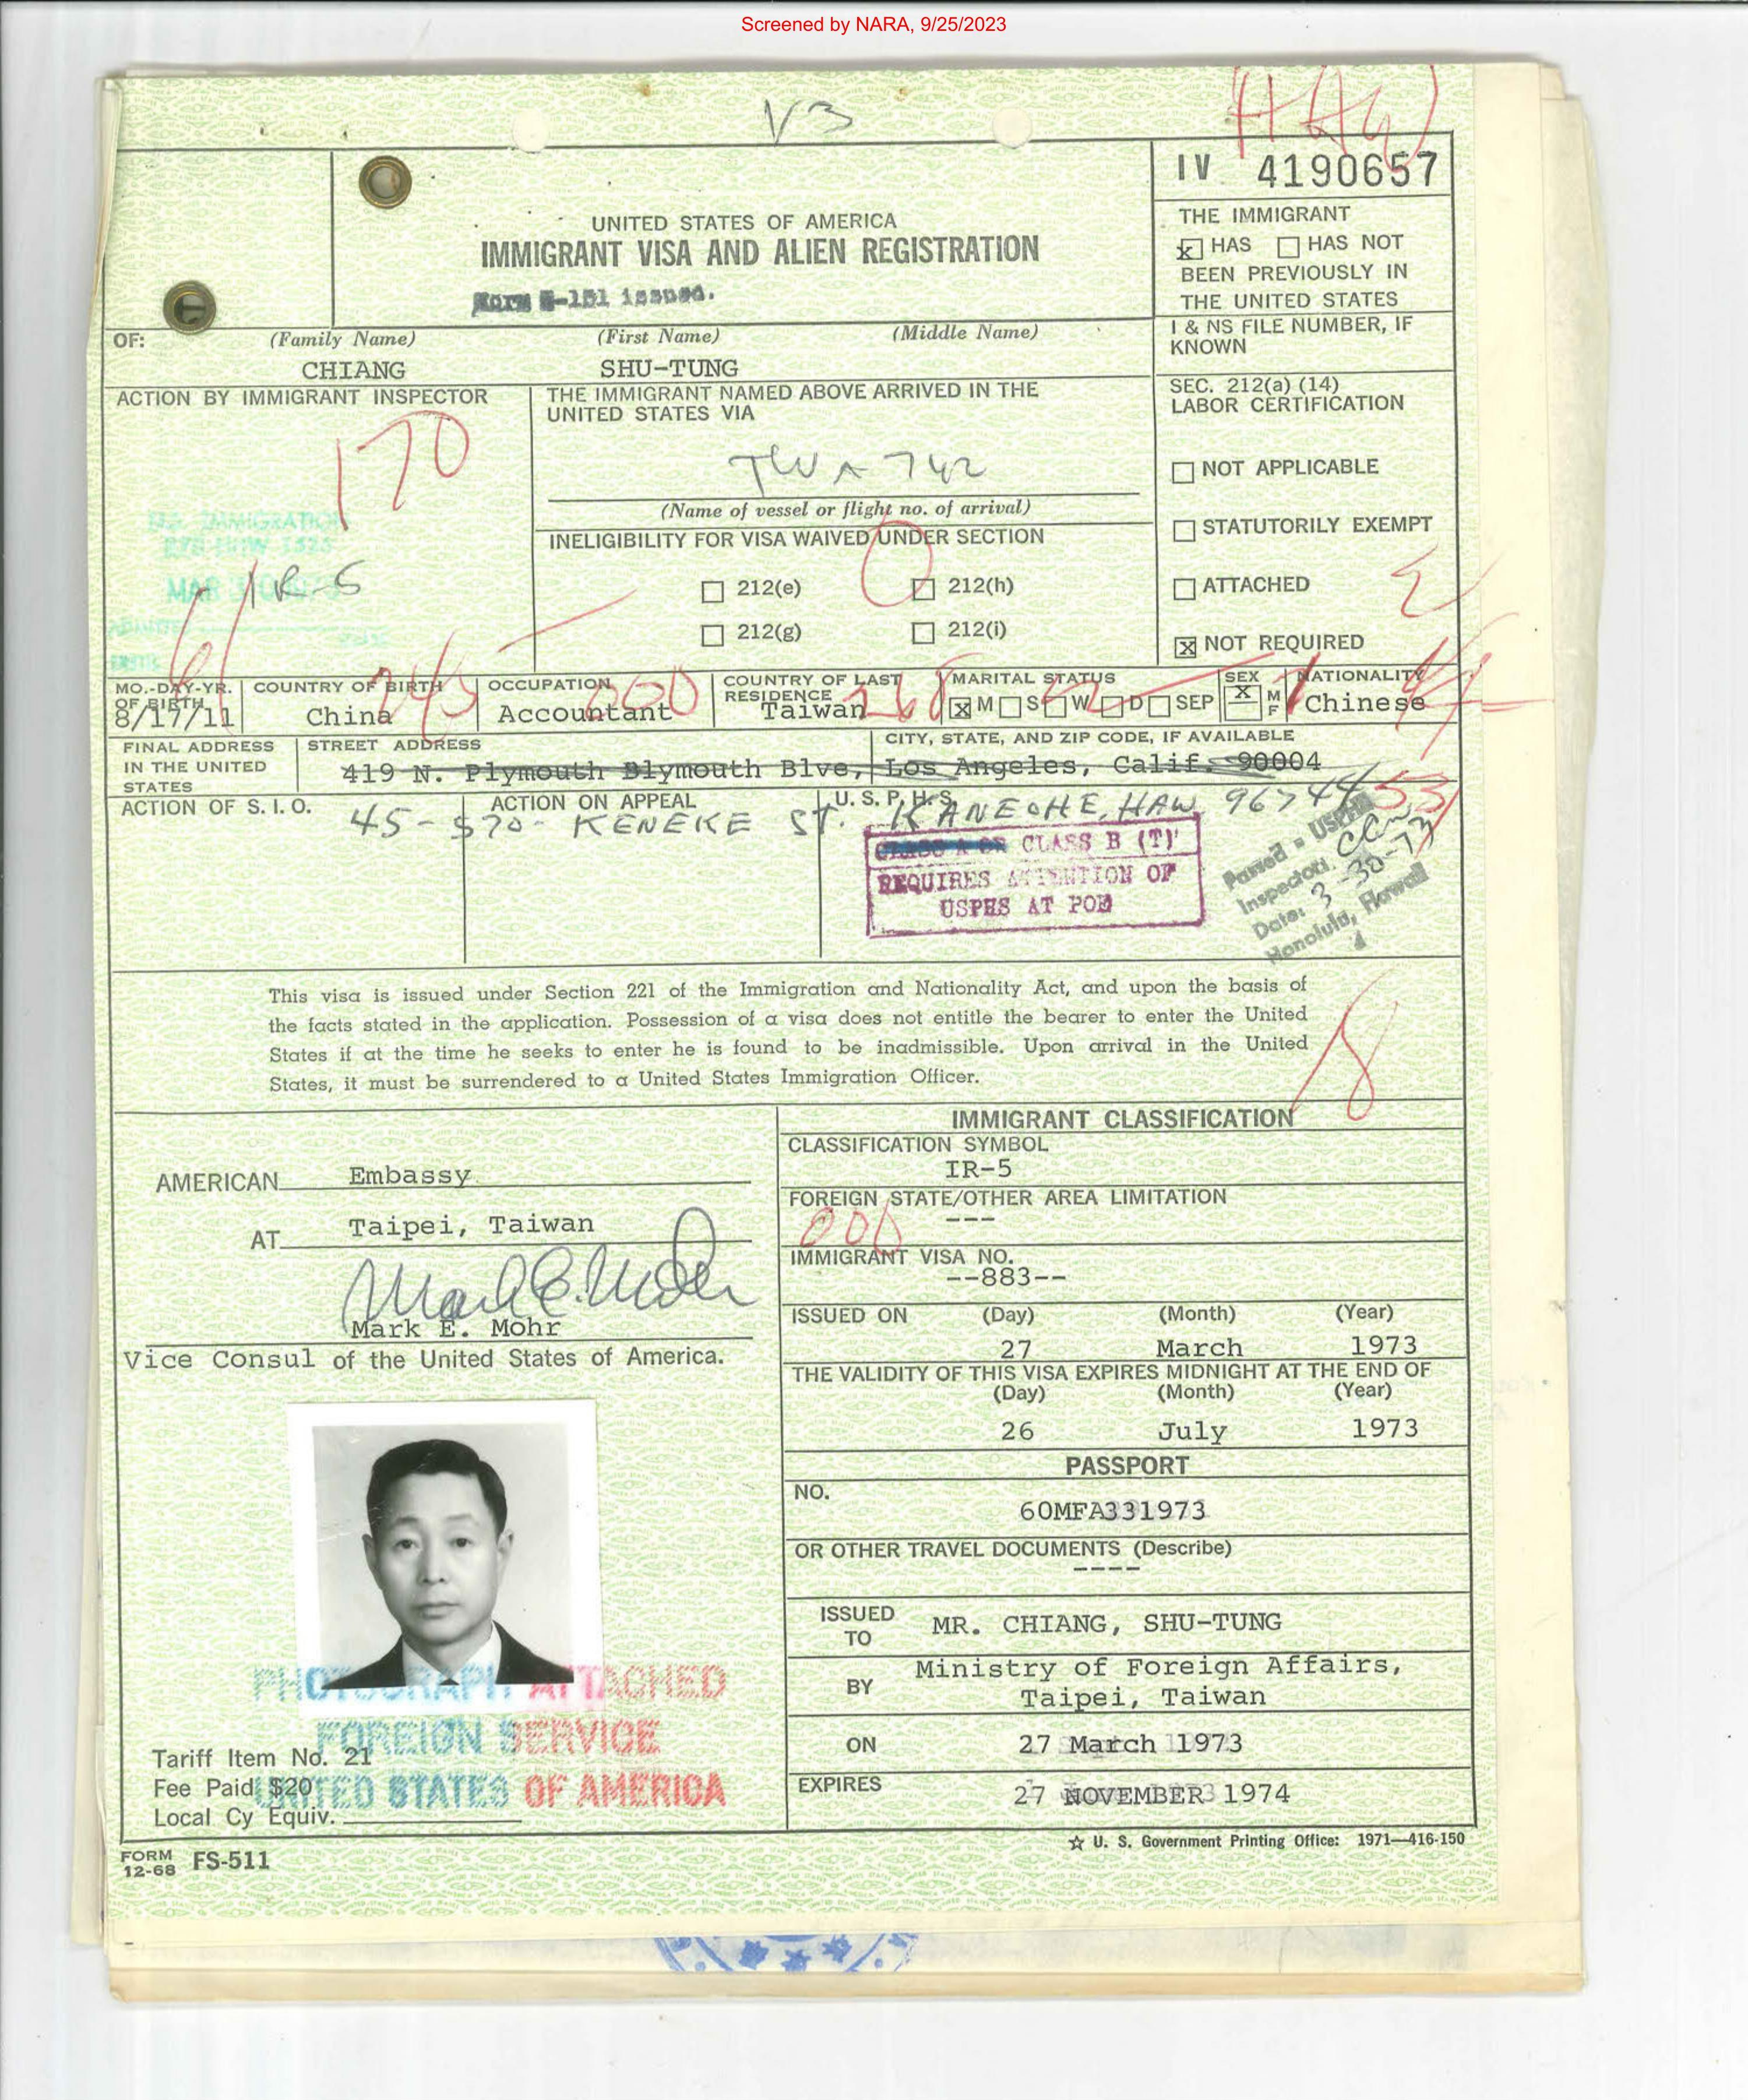 Screened by NARA, 9/25/2023
V3
IV 4190657
UNITED STATES OF AMERICA
IMMIGRANT VISA AND ALIEN REGISTRATION
Form I-151 issued.
THE IMMIGRANT
x HAS HAS NOT
BEEN PREVIOUSLY IN
THE UNITED STATES
OF: (Family Name) (First Name) (Middle Name)
CHIANG SHU-TUNG
I & NS FILE NUMBER, IF
KNOWN
ACTION BY IMMIGRANT INSPECTOR
170
U.S. IMMIGRATION
MAR
THE IMMIGRANT NAMED ABOVE ARRIVED IN THE
UNITED STATES VIA
TWA 742
(Name of vessel or flight no. of arrival)
INELIGIBILITY FOR VISA WAIVED UNDER SECTION
212(e) 212(h)
212(g) 212(i)
SEC. 212(a) (14)
LABOR CERTIFICATION
NOT APPLICABLE
STATUTORILY EXEMPT
ATTACHED
X NOT REQUIRED
MO.-DAY-YR.
OF BIRTH
8/17/11
COUNTRY OF BIRTH
China
245
OCCUPATION
Accountant
COUNTRY OF LAST
RESIDENCE
Taiwan
268
MARITAL STATUS
X M S W D SEP
SEX
X M
F
NATIONALITY
Chinese
FINAL ADDRESS
IN THE UNITED
STATES
STREET ADDRESS
419 N. Plymouth Blymouth Blve,
CITY, STATE, AND ZIP CODE, IF AVAILABLE
Los Angeles, Calif. 90004
45-570- KENEKE ST. KANEOHE, HAW 96744
ACTION OF S. I. O.
ACTION ON APPEAL
U. S. P. H. S.
CLASS A OR CLASS B (T)
REQUIRES ATTENTION OF
USPHS AT POE
Passed - USPHS
Inspector:
Date: 3-30-73
Honolulu, Hawaii
This visa is issued under Section 221 of the Immigration and Nationality Act, and upon the basis of
the facts stated in the application. Possession of a visa does not entitle the bearer to enter the United
States if at the time he seeks to enter he is found to be inadmissible. Upon arrival in the United
States, it must be surrendered to a United States Immigration Officer.
8
AMERICAN Embassy
AT Taipei, Taiwan
Mark E. Mohr
Mark E. Mohr
Vice Consul of the United States of America.
IMMIGRANT CLASSIFICATION
CLASSIFICATION SYMBOL
IR-5
FOREIGN STATE/OTHER AREA LIMITATION
---
000
IMMIGRANT VISA NO.
--883--
ISSUED ON (Day) (Month) (Year)
27 March 1973
THE VALIDITY OF THIS VISA EXPIRES MIDNIGHT AT THE END OF
(Day) (Month) (Year)
26 July 1973
PASSPORT
NO.
60MFA331973
OR OTHER TRAVEL DOCUMENTS (Describe)
----
ISSUED
TO
MR. CHIANG, SHU-TUNG
BY
Ministry of Foreign Affairs,
Taipei, Taiwan
ON 27 March 1973
EXPIRES 27 NOVEMBER 1974
PHOTOGRAPH ATTACHED
FOREIGN SERVICE
UNITED STATES OF AMERICA
Tariff Item No. 21
Fee Paid $20
Local Cy Equiv.
☆ U. S. Government Printing Office: 1971—416-150
FORM
12-68 FS-511